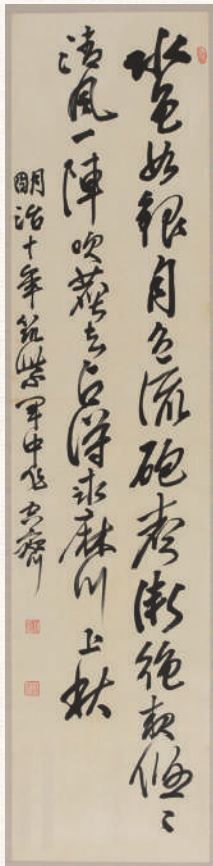 水色如銀月色流砲聲漸絶夜悠々
清風一陣吹去占得球麻川上秋
明治十年筑紫軍中作